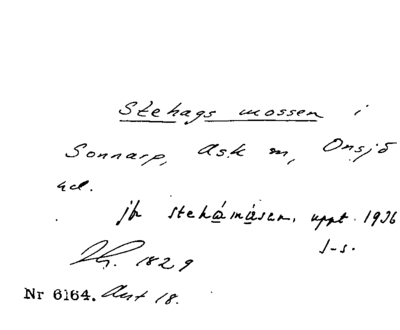 Stehags mossen i
Sonnarp, Ask sn, Onsjö
hd.
jfr stehåmåsen, uppt. 1936
I-s.
1829
Nr 6164. Ant 18.